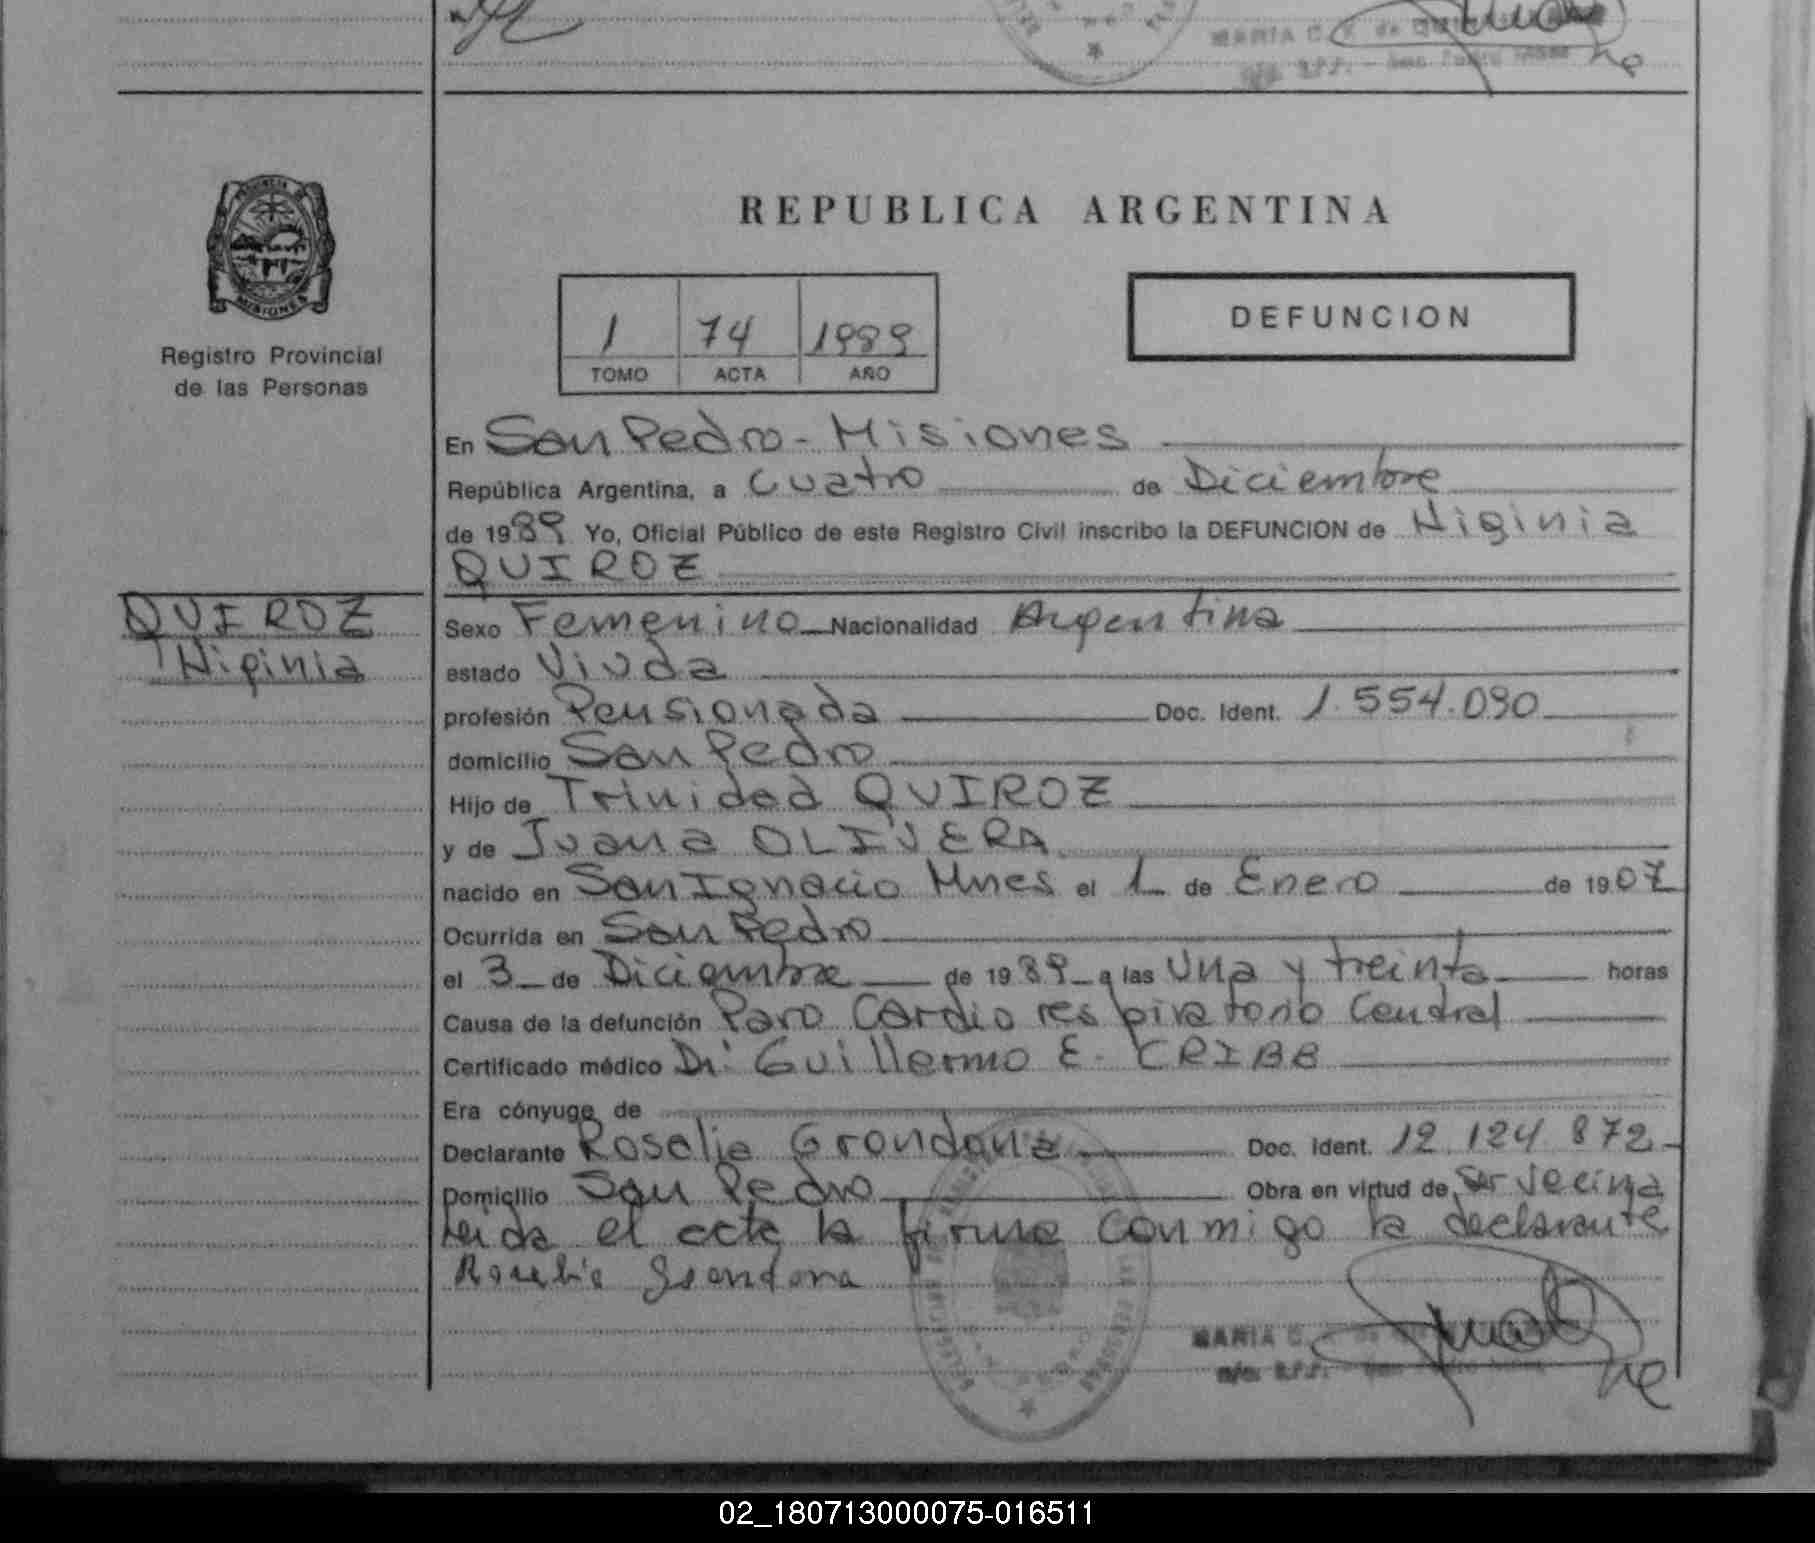 MARIA C.
REPUBLICA ARGENTINA
PROVINCIA DE
MISIONES
Registro Provincial
de las Personas
DEFUNCION
1 74 1989
TOMO ACTA AÑO
En San Pedro - Misiones
República Argentina, a cuatro de Diciembre
de 1989 Yo, Oficial Público de este Registro Civil inscribo la DEFUNCION de Higinia
QUIROZ
QUIROZ
Higinia
Sexo Femenino Nacionalidad Argentina
estado Viuda
profesión Pensionada Doc. Ident. 1.554.090
domicilio San Pedro
Hijo de Trinidad QUIROZ
y de Juana OLIVERA
nacido en San Ignacio Mnes el 1 de Enero de 1907
Ocurrida en San Pedro
el 3 de Diciembre de 1989 a las Una y treinta horas
Causa de la defunción Paro Cardio respiratorio Central
Certificado médico Dr. Guillermo E. CRIBB
Era cónyuge de
Declarante Roselia Grondona Doc. Ident. 12.124.872
Domicilio San Pedro Obra en virtud de Ser vecina
Leida el acta la firma conmigo la declarante
Grondona
MARIA C.
02_180713000075-016511